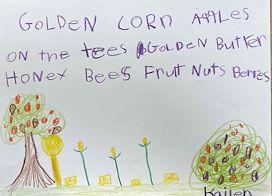 GOLDEN CORN APPLES
ON the tees GOLDEN Butter
HONEY Bees Fruit Nuts Berries
Kailen